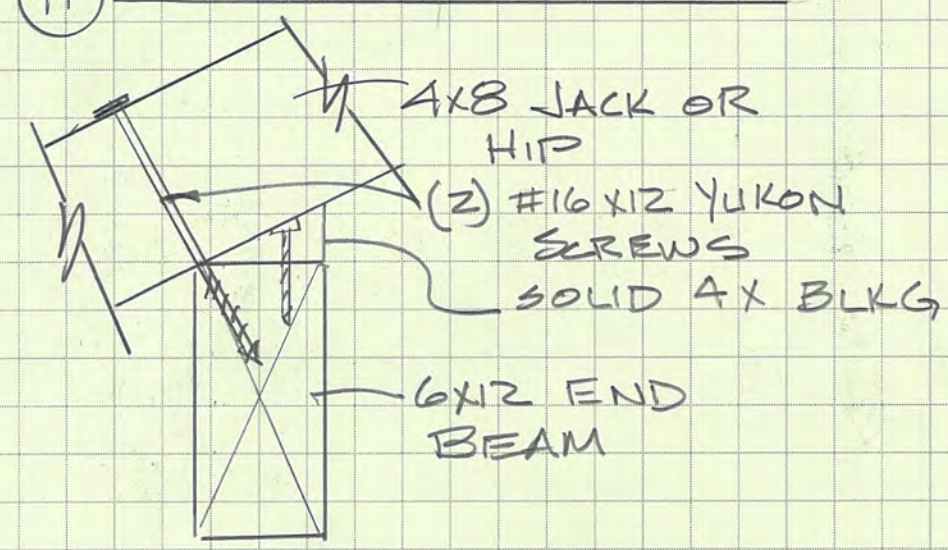 4X8 JACK OR
HIP
(2) #16 X12 YUKON
SCREWS
SOLID 4X BLKG
6X12 END
BEAM